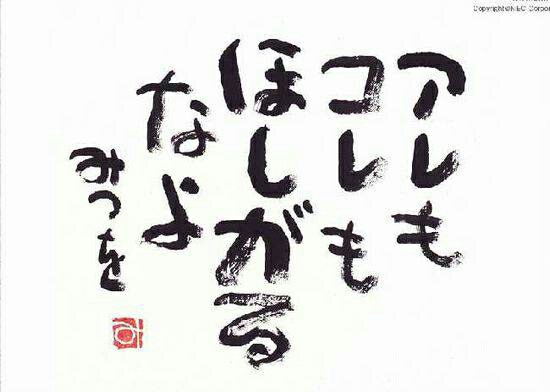 アレも
コレも
ほしがる
なよ
みつを
Copyright©NEC Corpor